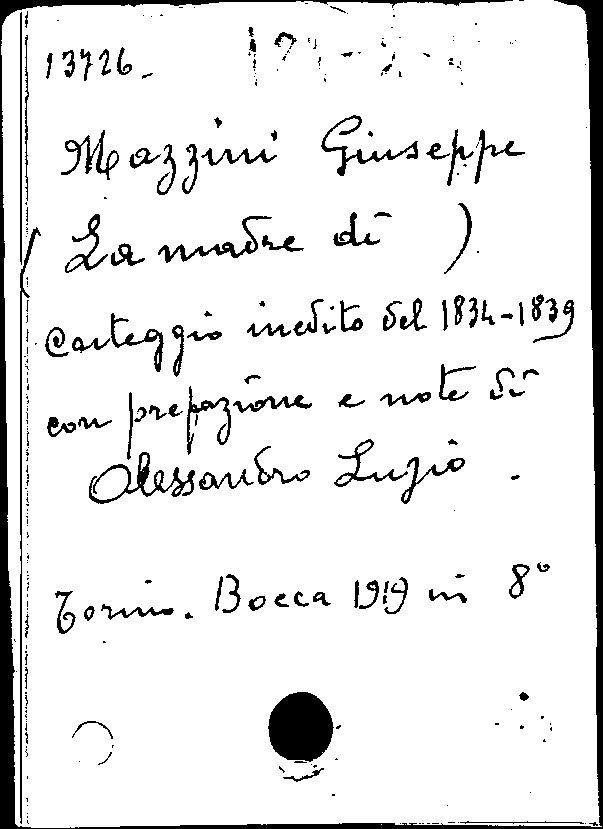 13726.
Mazzini Giuseppe
(La madre di)
Carteggio inedito del 1834-1839
con prefazione e note di
Alessandro Luzio.
Torino. Bocca 1919 in 8°